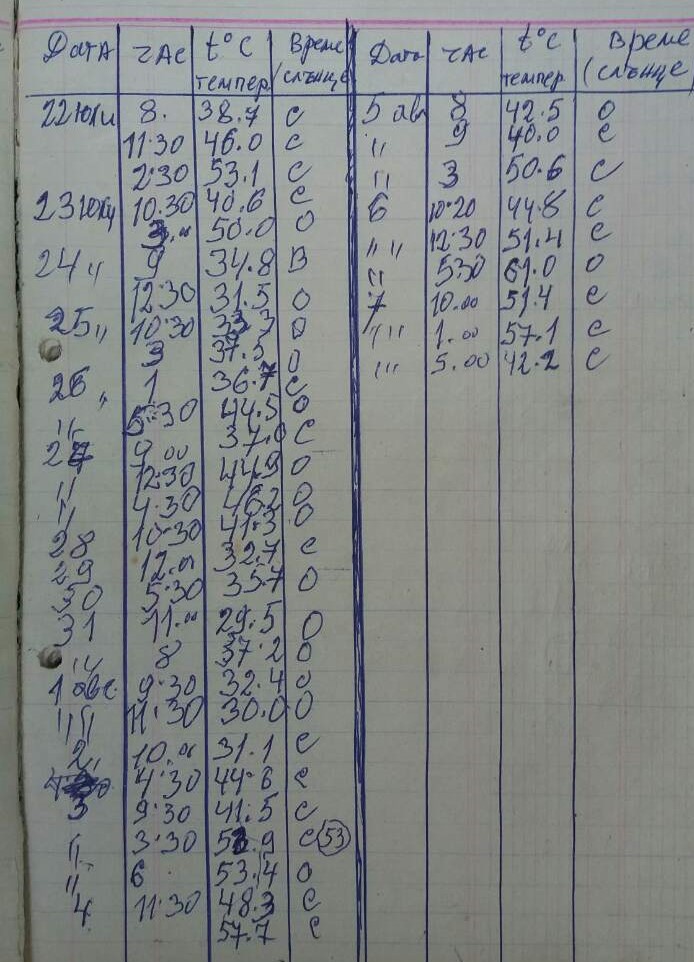 Дата час t°C темпер. Време (слънце)
22 юли 8. 38.7 с
11:30 46.0 с
2:30 53.1 с
23 юли 10.30 40.6 с
3.00 50.0 о
24 " 9 34.8 В
12:30 31.5 о
25 " 10:30 33.3 о
3 37.5 о
26 " 1 36.7 с
" 5:30 44.5 о
27 9.00 37.0 с
" 12:30 44.9 о
" 4.30 46.2 о
28 10.30 41.3 о
29 12.00 32.7 с
30 5:30 35.7 о
31 11.00 29.5 о
" 8 37.2 о
1 авг. 9:30 32.4 с
" " 11:30 30.0 о
2 " 10.00 31.1 с
4:30 44.6 с
3 9:30 41.5 с
" 3:30 53.9 с (53)
" 6 53.4 о
4 11:30 48.3 с
57.7 с
Дата час t°C темпер. Време (слънце)
5 авг 8 42.5 о
" 9 40.0 с
" 3 50.6 с
6 10:20 44.8 с
" " 12:30 51.4 с
" 530 61.0 о
7 10.00 51.4 с
" 1.00 57.1 с
" 5.00 42.2 с